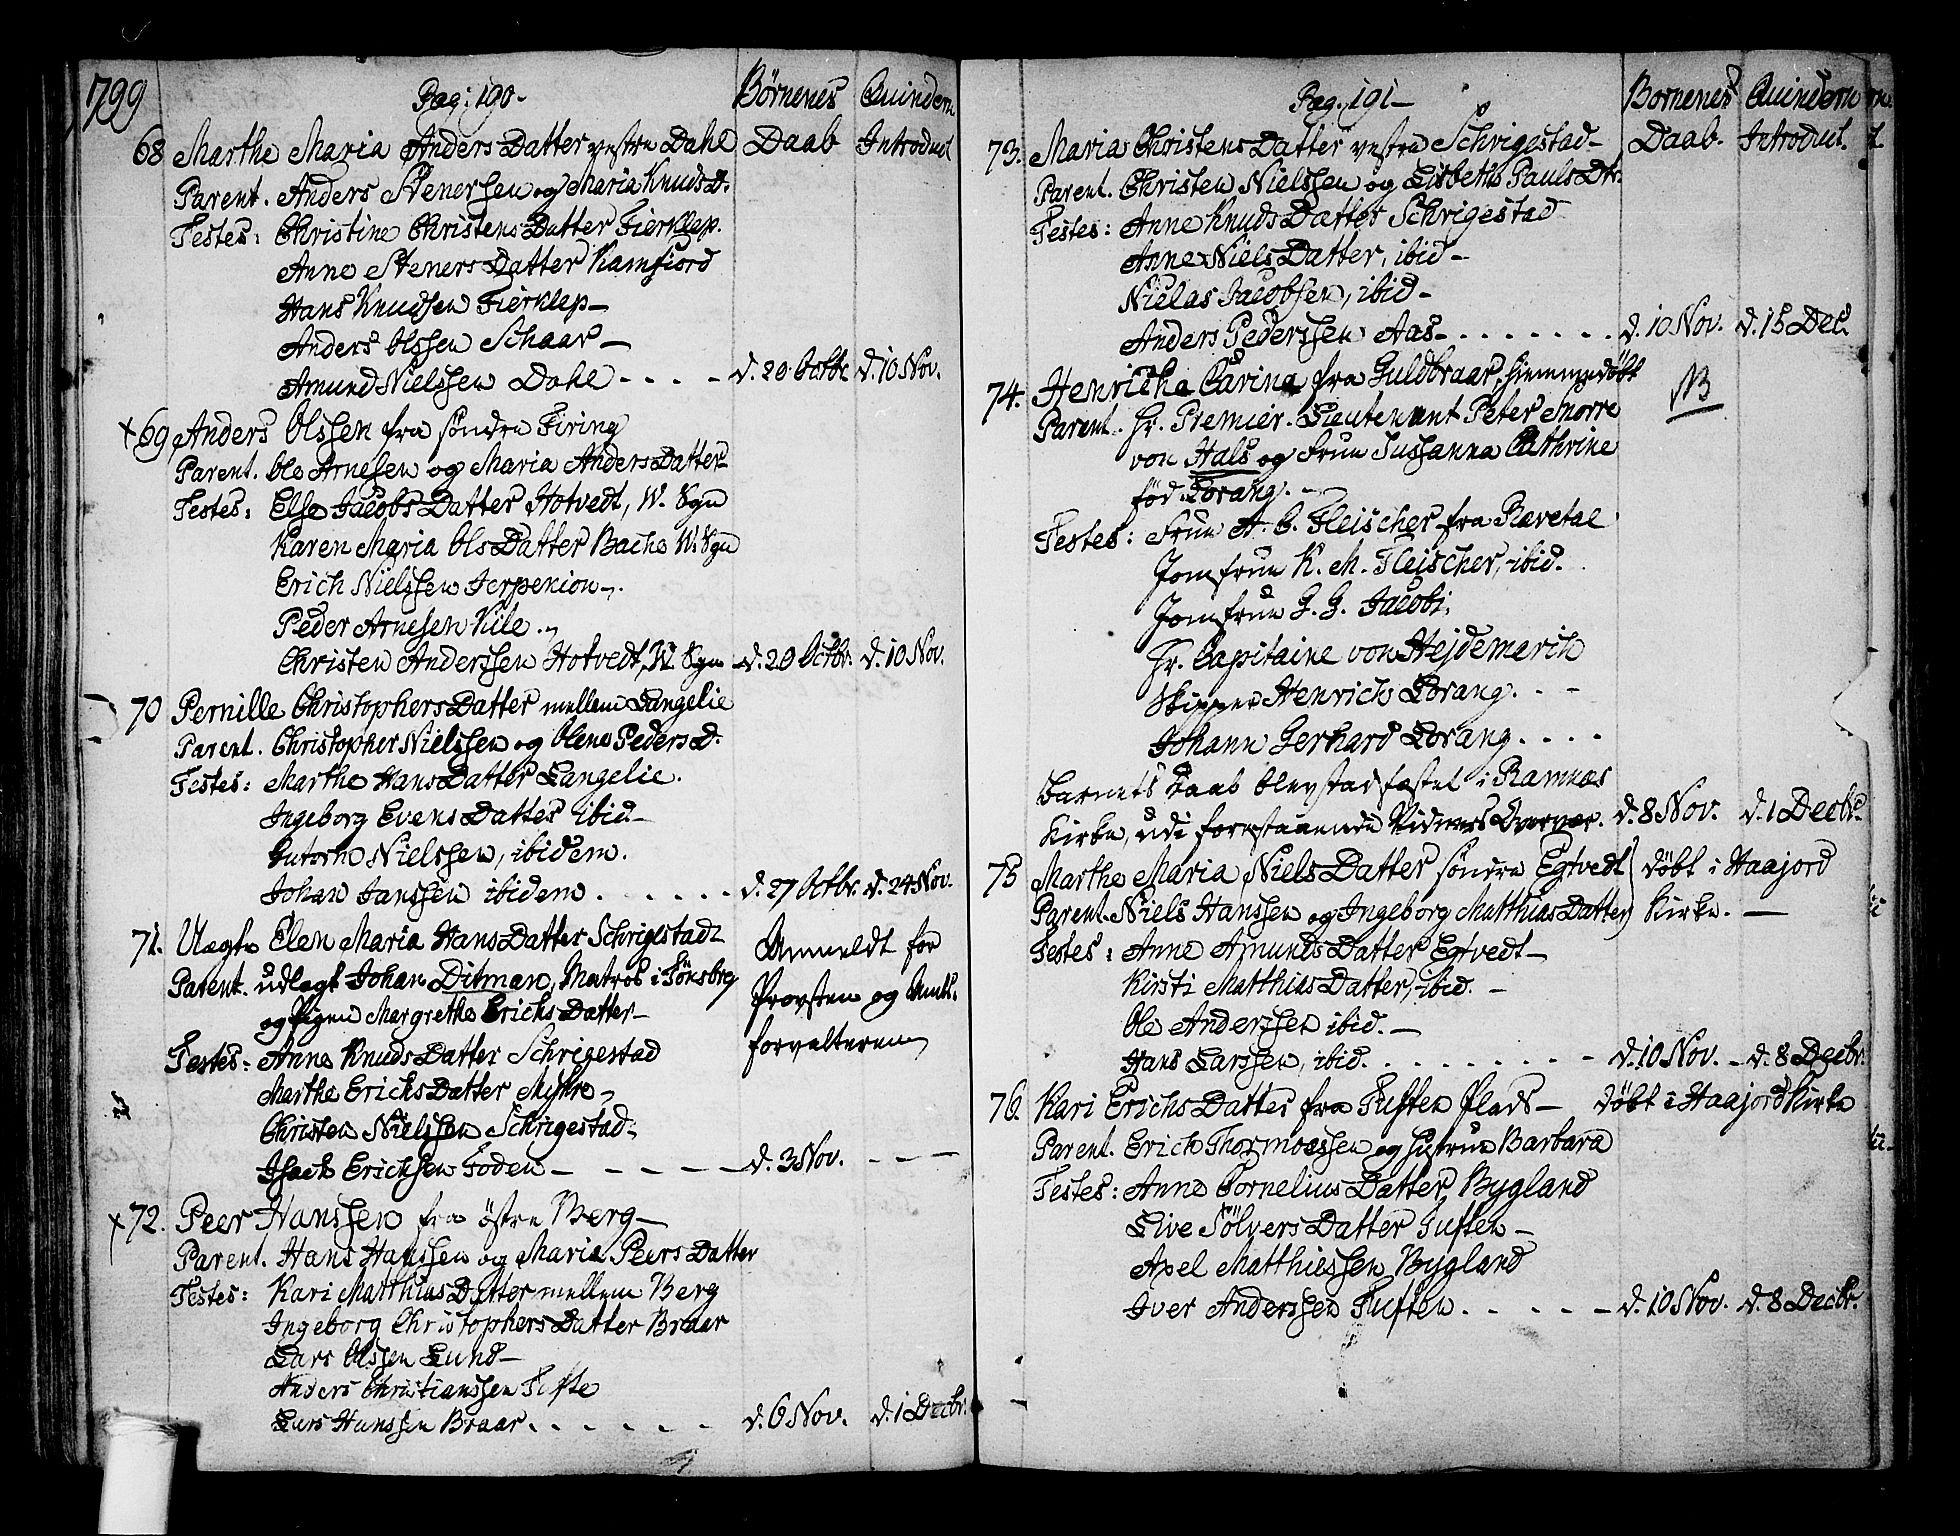 1799
Pag: 190.
Börnenes Daab
Quindern Introduct
68 Marthe Maria Anders Datter vestre Dahl
Parent. Anders Stenerssen og Maria Knuds D.
Testes: Christine Christens Datter Fierklep.
Anne Steners Datter Kamfiord
Hans Knudsen Fierklep
Anders Olssen Schaar
Amund Nielssen Dahl d. 20 Octbr d. 10 Nov.
+69 Anders Olssen fra söndre Firing
Parent. Ole Arnesen og Maria Anders Datter
Testes: Else Jacobs Datter Hotvedt, W. Sgn
Karen Maria Ols Datter Bache W. Sgn
Erich Nielssen Jerpekion
Peder Arnesen Kile
Christen Anderssen Hotvedt, W. Sgn d. 20 Octbr. d. 10 Nov.
70 Pernille Christophers Datter mellem Langelie
Parent. Christopher Nielssen og Olene Peders D.
Testes: Marthe Hans Datter Langelie.
Ingeborg Evens Datter ibid
Nielssen, ibidem.
Johan Janssen ibidem d. 27 Octbr. d. 24 Nov.
71. Uægte Elen Maria Hans Datter Schrigestad
Anmeldt for
Parent. udlagt Johan Ditman, Matros i Tönsberg
Provsten og Amts
og Pigen Margrethe Erichs Datter
forvalteren
Testes: Anne Knuds Datter Schrigestad
Marthe Erichs Datter Myhre
Christen Nielssen Schrigestad
Isach Erichsen Foden d. 3 Nov.
+72. Peer Hanssen fra östre Berg
Parent. Hans Hanssen og Maria Peers Datter
Testes: Kari Matthias Datter mellem Berg
Ingeborg Christophers Datter Braar
Lars Olssen Lund
Anders Christianssen Tufte
Lars Hanssen Braar d. 6 Nov. d. 1 Decbr.
Pag. 191
Bornenes Daab.
Quindern Introduct.
73. Maria Christens Datter vestre Schrigestad
Parent. Christen Nielssen og Lisbeth Pauls Dtr.
Testes: Anne Knuds Datter Schrigestad
Anne Niels Datter, ibid
Nielas Jacobsen, ibid
Anders Pederssen Aas d. 10 Nov. d. 15 Dec.
74. Henriche Carina fra Guldbraar, hiemmedöbt
NB
Parent. Hr. Premier-Lieutenant Peter Snorre
von Hals og Frue Sussanna Cathrine
föd Lorang.
Testes: Frue A. C. Fleischer fra Rævetal
Jomfrue K. M. Fleischer, ibid.
Jomfrue G. G. Jacobi,
Hr. Capitaine von Hejdemarch
Skipper Henrich Lorang.
Johann Gerhard Lorang
Barnets Daab blev stadfæstet i Ramnæs
Kirke, udi forestaaende Vidners Overvær. d. 8 Nov. d. 1 Decbr.
75 Marthe Maria Niels Datter söndre Egtvedt döbt i Haajord
Parent. Niels Hanssen og Ingeborg Matthias Datter Kirke.
Testes: Anne Amunds Datter Egtvedt
Kirsti Matthias Datter, ibid.
Ole Anderssen ibid.
Hans Larssen, ibid. d. 10 Nov. d. 8 Decbr.
76. Kari Erichs Datter fra Tuften Plads döbt i Haajord Kirke
Parent. Erich Thormoessen og Hustrue Barbara
Testes: Anne Cornelius Datter Bygland
Live Sölvers Datter Tuften
Axel Matthiessen Bygland
Iver Anderssen Tuften d. 10 Nov. d. 8 Decbr.